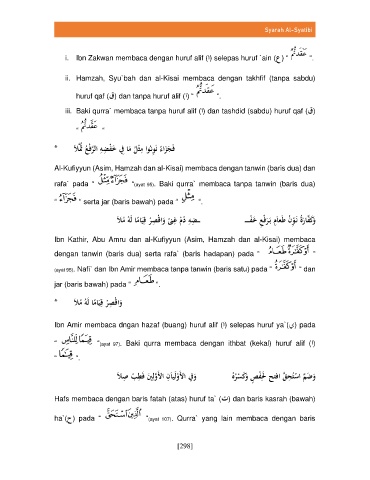 Syarah Al-Syatibi
i. Ibn Zakwan membaca dengan huruf alif (ا) selepas huruf `ain (ع) " عَقَدتُّمُ ".
ii. Hamzah, Syu`bah dan al-Kisai membaca dengan takhfif (tanpa sabdu)
huruf qaf (ق) dan tanpa huruf alif (ا) " عَقَدتُّمُ ".
iii. Baki qurra` membaca tanpa huruf alif (ا) dan tashdid (sabdu) huruf qaf (ق)
" عَقَّدتُّمُ "
Al-Kufiyyun (Asim, Hamzah dan al-Kisai) membaca dengan tanwin (baris dua) dan
rafa` pada " فَجَزَآءٌ مِّثْلُ " (ayat 95). Baki qurra` membaca tanpa tanwin (baris dua)
" فَجَزَآءُ " serta jar (baris bawah) pada " مِثْلِ ".
Ibn Kathir, Abu Amru dan al-Kufiyyun (Asim, Hamzah dan al-Kisai) membaca
dengan tanwin (baris dua) serta rafa` (baris hadapan) pada " أَوْ كَفَّٰرَةٌ طَعَامُ "
(ayat 95). Nafi` dan Ibn Amir membaca tanpa tanwin (baris satu) pada " أَوْ كَفَّٰرَةُ " dan
jar (baris bawah) pada " طَعَامِ ".
Ibn Amir membaca dngan hazaf (buang) huruf alif (ا) selepas huruf ya`(ي) pada
" قِيَٰمًا لِّلنَّاسِ " (ayat 97). Baki qurra membaca dengan ithbat (kekal) huruf alif (ا)
" قِيَٰمًا ".
Hafs membaca dengan baris fatah (atas) huruf ta` (ت) dan baris kasrah (bawah)
ha`(ح) pada " ٱلَّذِينَ ٱسْتَحَقَّ " (ayat 107). Qurra` yang lain membaca dengan baris
[298]